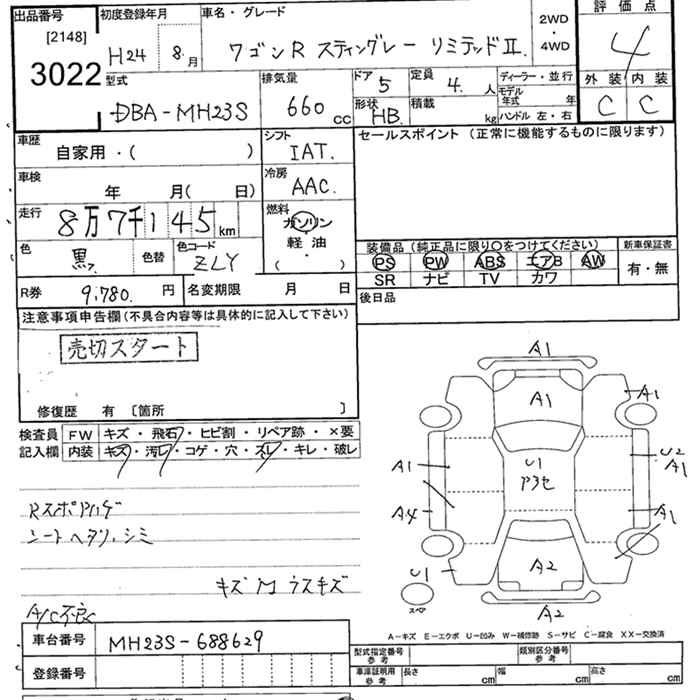 出品番号 初度登録年月 車名・グレード 2WD ・ 4WD 評価点
[2148] 3022 H24 8.月 ワゴンR スティングレー リミテッドⅡ 4
型式 排気量 ドア 5 定員 4. 人 ディーラー・並行 外装 内装
DBA-MH23S 660 cc 形状 HB. 積載 kg モデル年式 年 ハンドル 左・右 C C
車歴 シフト セールスポイント (正常に機能するものに限ります)
自家用・( ) IAT.
車検 年 月( 日) 冷房 AAC.
走行 8万7千145km 燃料 ガソリン
軽油
( )
色 黒 色替 色コード ZLY
装備品 (純正品に限り○をつけてください) 新車保証書
PS PW ABS エアB AW 有・無
SR ナビ TV カワ
R券 9,780. 円 名変期限 月 日 後日品
注意事項申告欄(不具合内容等は具体的に記入して下さい)
売切スタート
修復歴 有 [箇所 ]
検査員 FW キズ・飛石・ヒビ割・リペア跡・×要
記入欄 内装 キズ・汚レ・コゲ・穴・スレ・キレ・破レ
シートヘタリ、シミ
A/C不良
A1
A1
A1
A1
U1
U2
A1
A4
A1
U1
A2
A2
スペア
A-キズ E-エクボ U-凹み W-補修跡 S-サビ C-腐食 XX-交換済
車台番号 MH23S-688629
登録番号
型式指定番号 参考 類別区分番号 参考
車庫証明用 参考 長さ cm 幅 cm 高さ cm